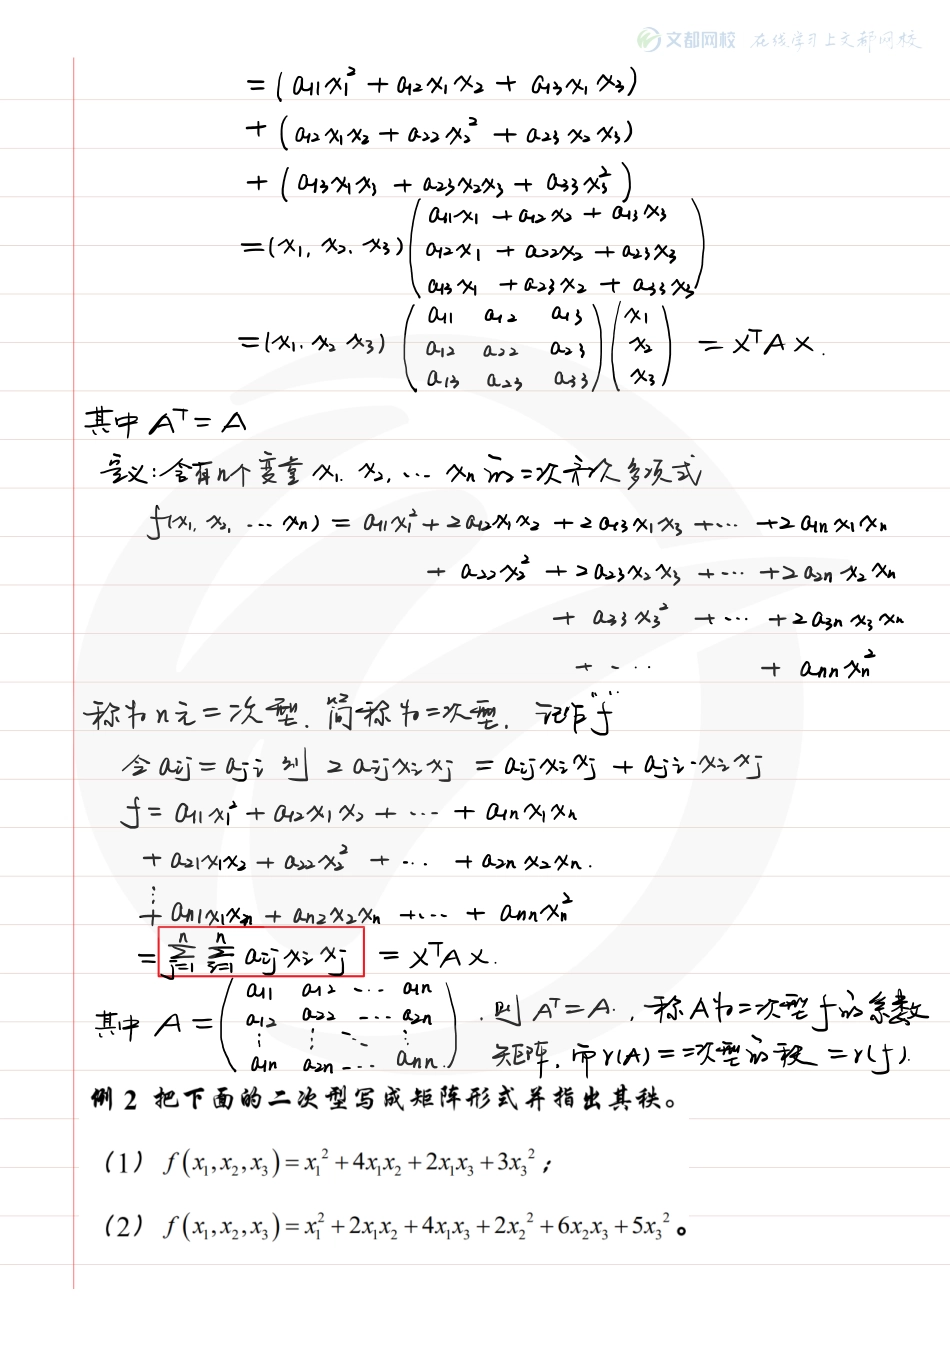 文都网校 在线学习上文都网校
=(a11x1² + a12x1x2 + a13x1x3)
+ (a12x1x2 + a22x2² + a23x2x3)
+ (a13x1x3 + a23x2x3 + a33x3²)
=(x1, x2, x3) ( a11x1 + a12x2 + a13x3
a12x1 + a22x2 + a23x3
a13x1 + a23x2 + a33x3 )
=(x1, x2 x3) ( a11 a12 a13
a12 a22 a23
a13 a23 a33 ) ( x1
x2
x3 ) = xᵀAx.
其中 Aᵀ = A
定义:含有n个变量 x1, x2, … xn 的二次齐次多项式
f(x1, x2, … xn) = a11x1² + 2a12x1x2 + 2a13x1x3 + … + 2a1nx1xn
+ a22x2² + 2a23x2x3 + … + 2a2nx2xn
+ a33x3² + … + 2a3nx3xn
+ … + annxn²
称为n元二次型, 简称为二次型, 记作f
令 aij = aji 则 2aijxixj = aijxixj + aji·xixj
f = a11x1² + a12x1x2 + … + a1nx1xn
+ a21x1x2 + a22x2² + … + a2nx2xn.
⋮
+ an1x1xn + an2x2xn + … + annxn²
= ∑_{j=1}^{n} ∑_{i=1}^{n} aijxixj = xᵀAx.
其中 A = ( a11 a12 … a1n
a12 a22 … a2n
⋮ ⋮ ⋱ ⋮
a1n a2n … ann ), 则 Aᵀ = A, 称A为二次型f的系数
矩阵, 而r(A) = 二次型的秩 = r(f).
例 2 把下面的二次型写成矩阵形式并指出其秩。
(1) f(x₁,x₂,x₃)=x₁²+4x₁x₂+2x₁x₃+3x₃²;
(2) f(x₁,x₂,x₃)=x₁²+2x₁x₂+4x₁x₃+2x₂²+6x₂x₃+5x₃²。